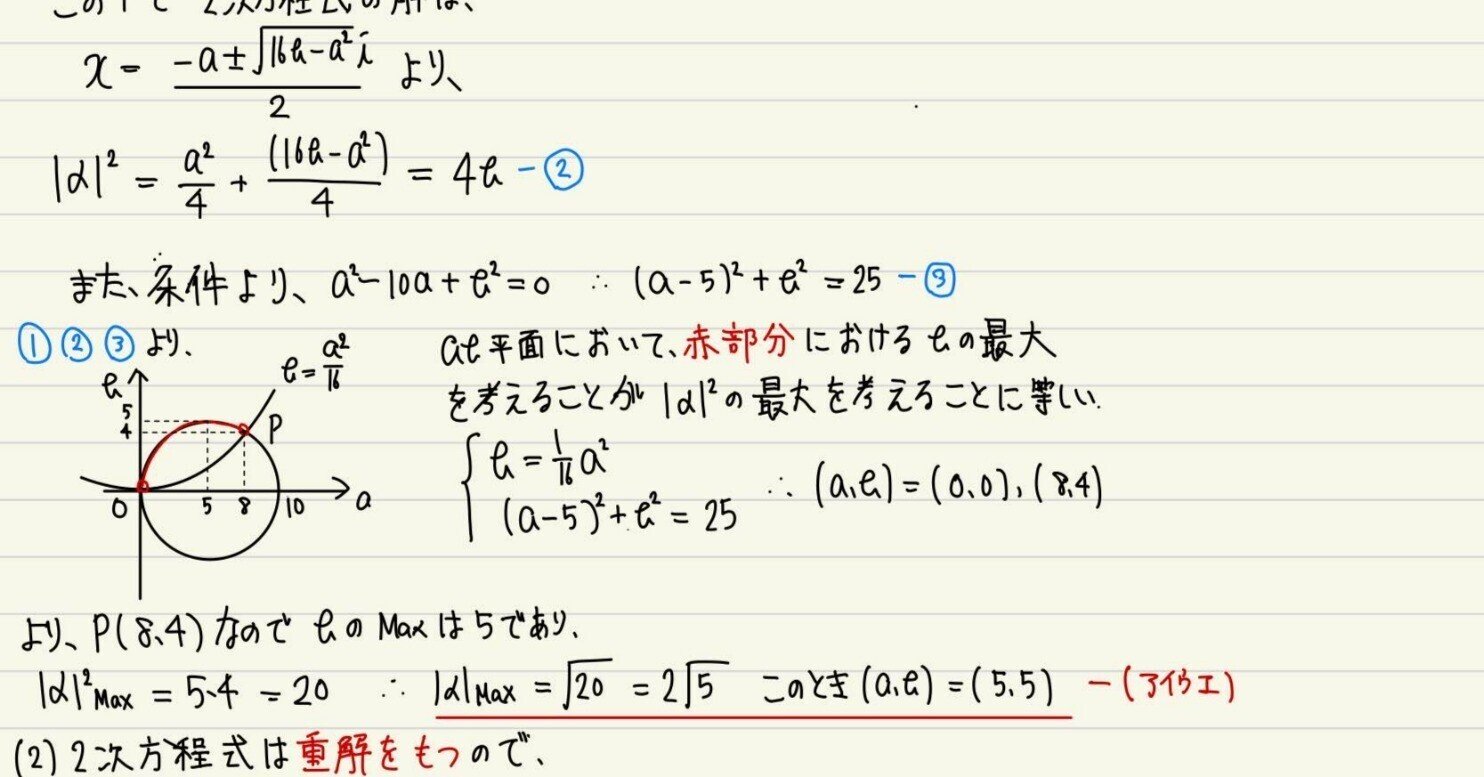 x = (-a±√(16b-a²) i)/2 より、
|α|² = a²/4 + (16b-a²)/4 = 4b -②
また、条件より、a²-10a+b²=0 ∴ (a-5)²+b²=25 -③
①②③より、
b=a²/16
b
5
4
P
0 5 8 10 a
ab平面において、赤部分におけるbの最大
を考えることが|α|²の最大を考えることに等しい.
{ b=1/16 a²
(a-5)²+b²=25
∴ (a,b)=(0,0),(8,4)
より、P(8,4)なのでbのMaxは5であり、
|α|²Max = 5·4 = 20 ∴ |α|Max = √20 = 2√5 このとき(a,b)=(5,5) -(アイウエ)
(2) 2次方程式は重解をもつので、